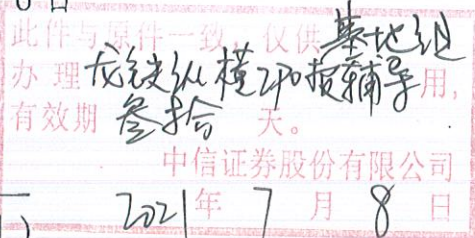 日
此件与原件一致，仅供基地组
办理龙铁纵横IPO报辅导用，
有效期叁拾天。
中信证券股份有限公司
2021年7月8日